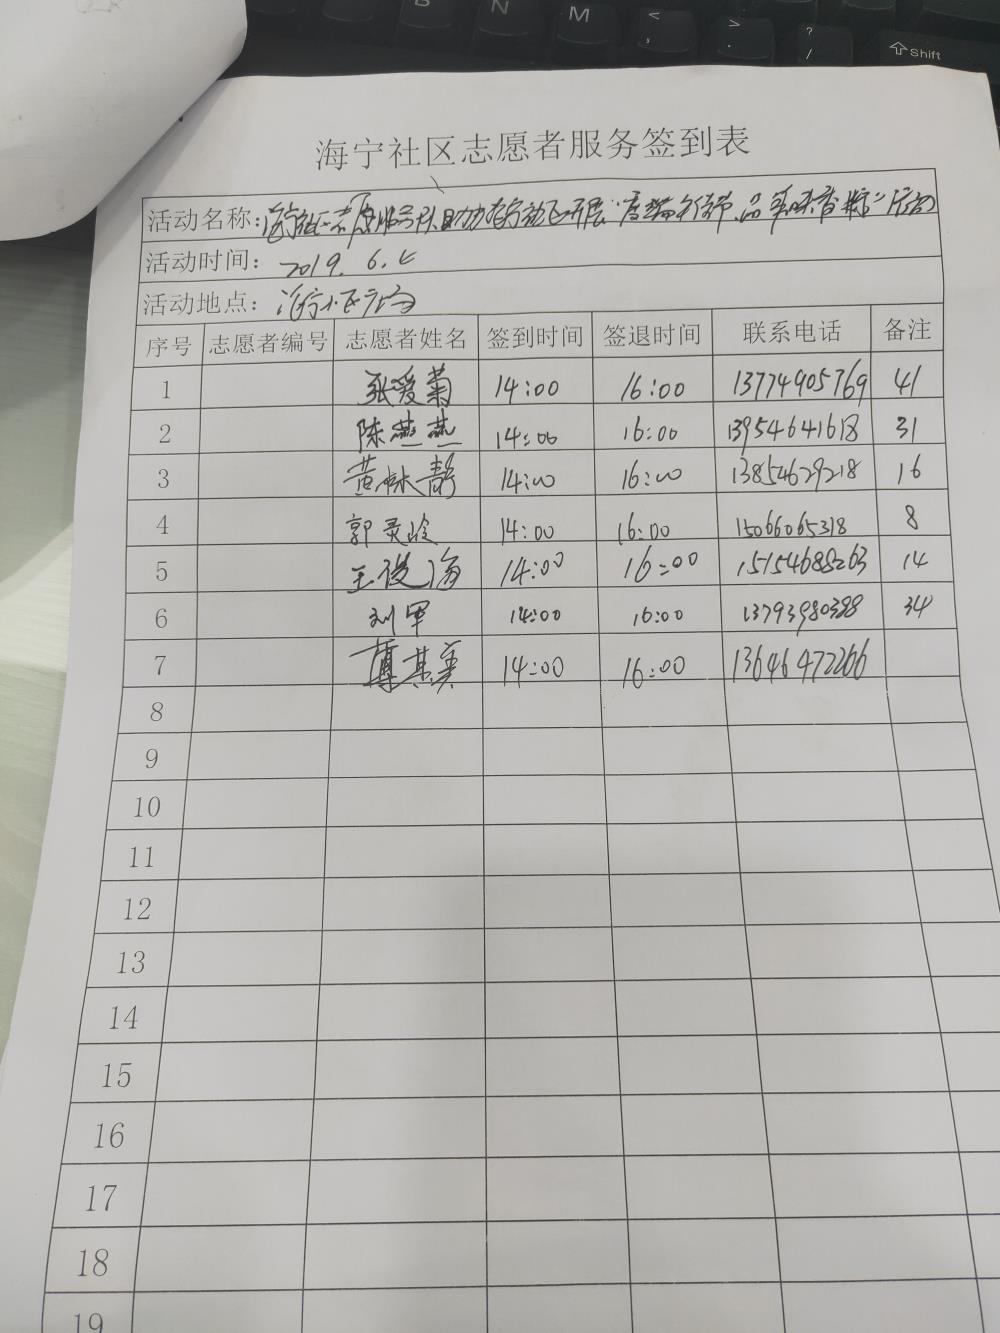 B N M < , > . ? / Shift
海宁社区志愿者服务签到表
活动名称: 海宁社区志愿服务队助力在行动之开展"度端午佳节 品粽味香甜"活动
活动时间: 2019.6.4
活动地点: 海宁社区广场
序号 志愿者编号 志愿者姓名 签到时间 签退时间 联系电话 备注
1 张爱菊 14:00 16:00 13774905769 41
2 陈燕燕 14:00 16:00 13954641618 31
3 黄林静 14:00 16:00 13854629218 16
4 郭灵玲 14:00 16:00 15066065318 8
5 王俊海 14:00 16:00 15154688263 14
6 刘军 14:00 16:00 13793980388 34
7 14:00 16:00 13646472266
8
9
10
11
12
13
14
15
16
17
18
19